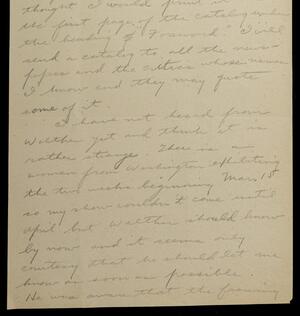 thought I would print in
the first page of the catalog under
the heading of "Foreword." I will
send a catalog to all the news-
papers and the critics whose names
I know and they may quote
some of it.
I have not heard from
Walther yet and think it is
rather strange. There is a
woman from Washington exhibiting
the two weeks beginning Mars 15
so my show couldn't come until
April but Walther should know
by now and it seems only
courtesy that he should let me
know as soon as possible.
He was aware that the framing